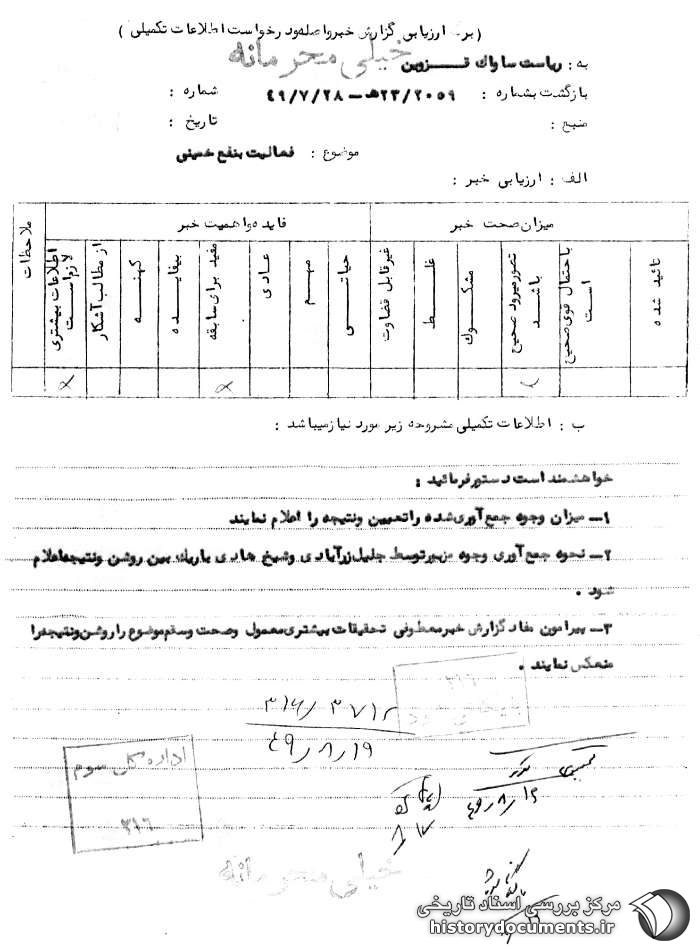 ( برگ ارزیابی گزارش خبر واصله و درخواست اطلاعات تکمیلی )
خیلی محرمانه
به : ریاست ساواک قزوین
بازگشت بشماره : ۲۳/۲۰۵۹ه‍ – ۴۹/۷/۲۸ شماره :
منبع : تاریخ :
موضوع : فعالیت بنفع خمینی
الف : ارزیابی خبر :
میزان صحت خبر فایده و اهمیت خبر ملاحظات
تائید شده
با احتمال قوی صحیح است
تصور میرود صحیح باشد
مشکوک
غلط
غیر قابل قضاوت
حیاتی
مهم
عادی
مفید برای سابقه
بیفایده
کهنه
از مطالب آشکار
اطلاعات بیشتری لازم است
ب : اطلاعات تکمیلی مشروحه زیر مورد نیاز میباشد :
خواهشمند است دستور فرمائید :
۱– میزان وجوه جمع آوری شده را تعیین و نتیجه را اعلام نمایند
۲– نحوه جمع آوری وجوه مزبور توسط جلیل زرآبادی و شیخ هادی باریک بین روشن و نتیجه اعلام
شود .
۳– پیرامون مفاد گزارش خبر معطوفی تحقیقات بیشتری معمول و صحت و سقم موضوع را روشن و نتیجه را
منعکس نمایند .
۳۱۶
۳۱۶/۳۷۱۲
۴۹/۸/۱۹
اداره کل سوم
۳۱۶
۴۹/۸/۱۲
خیلی محرمانه
مرکز بررسی اسناد تاریخی
historydocuments.ir